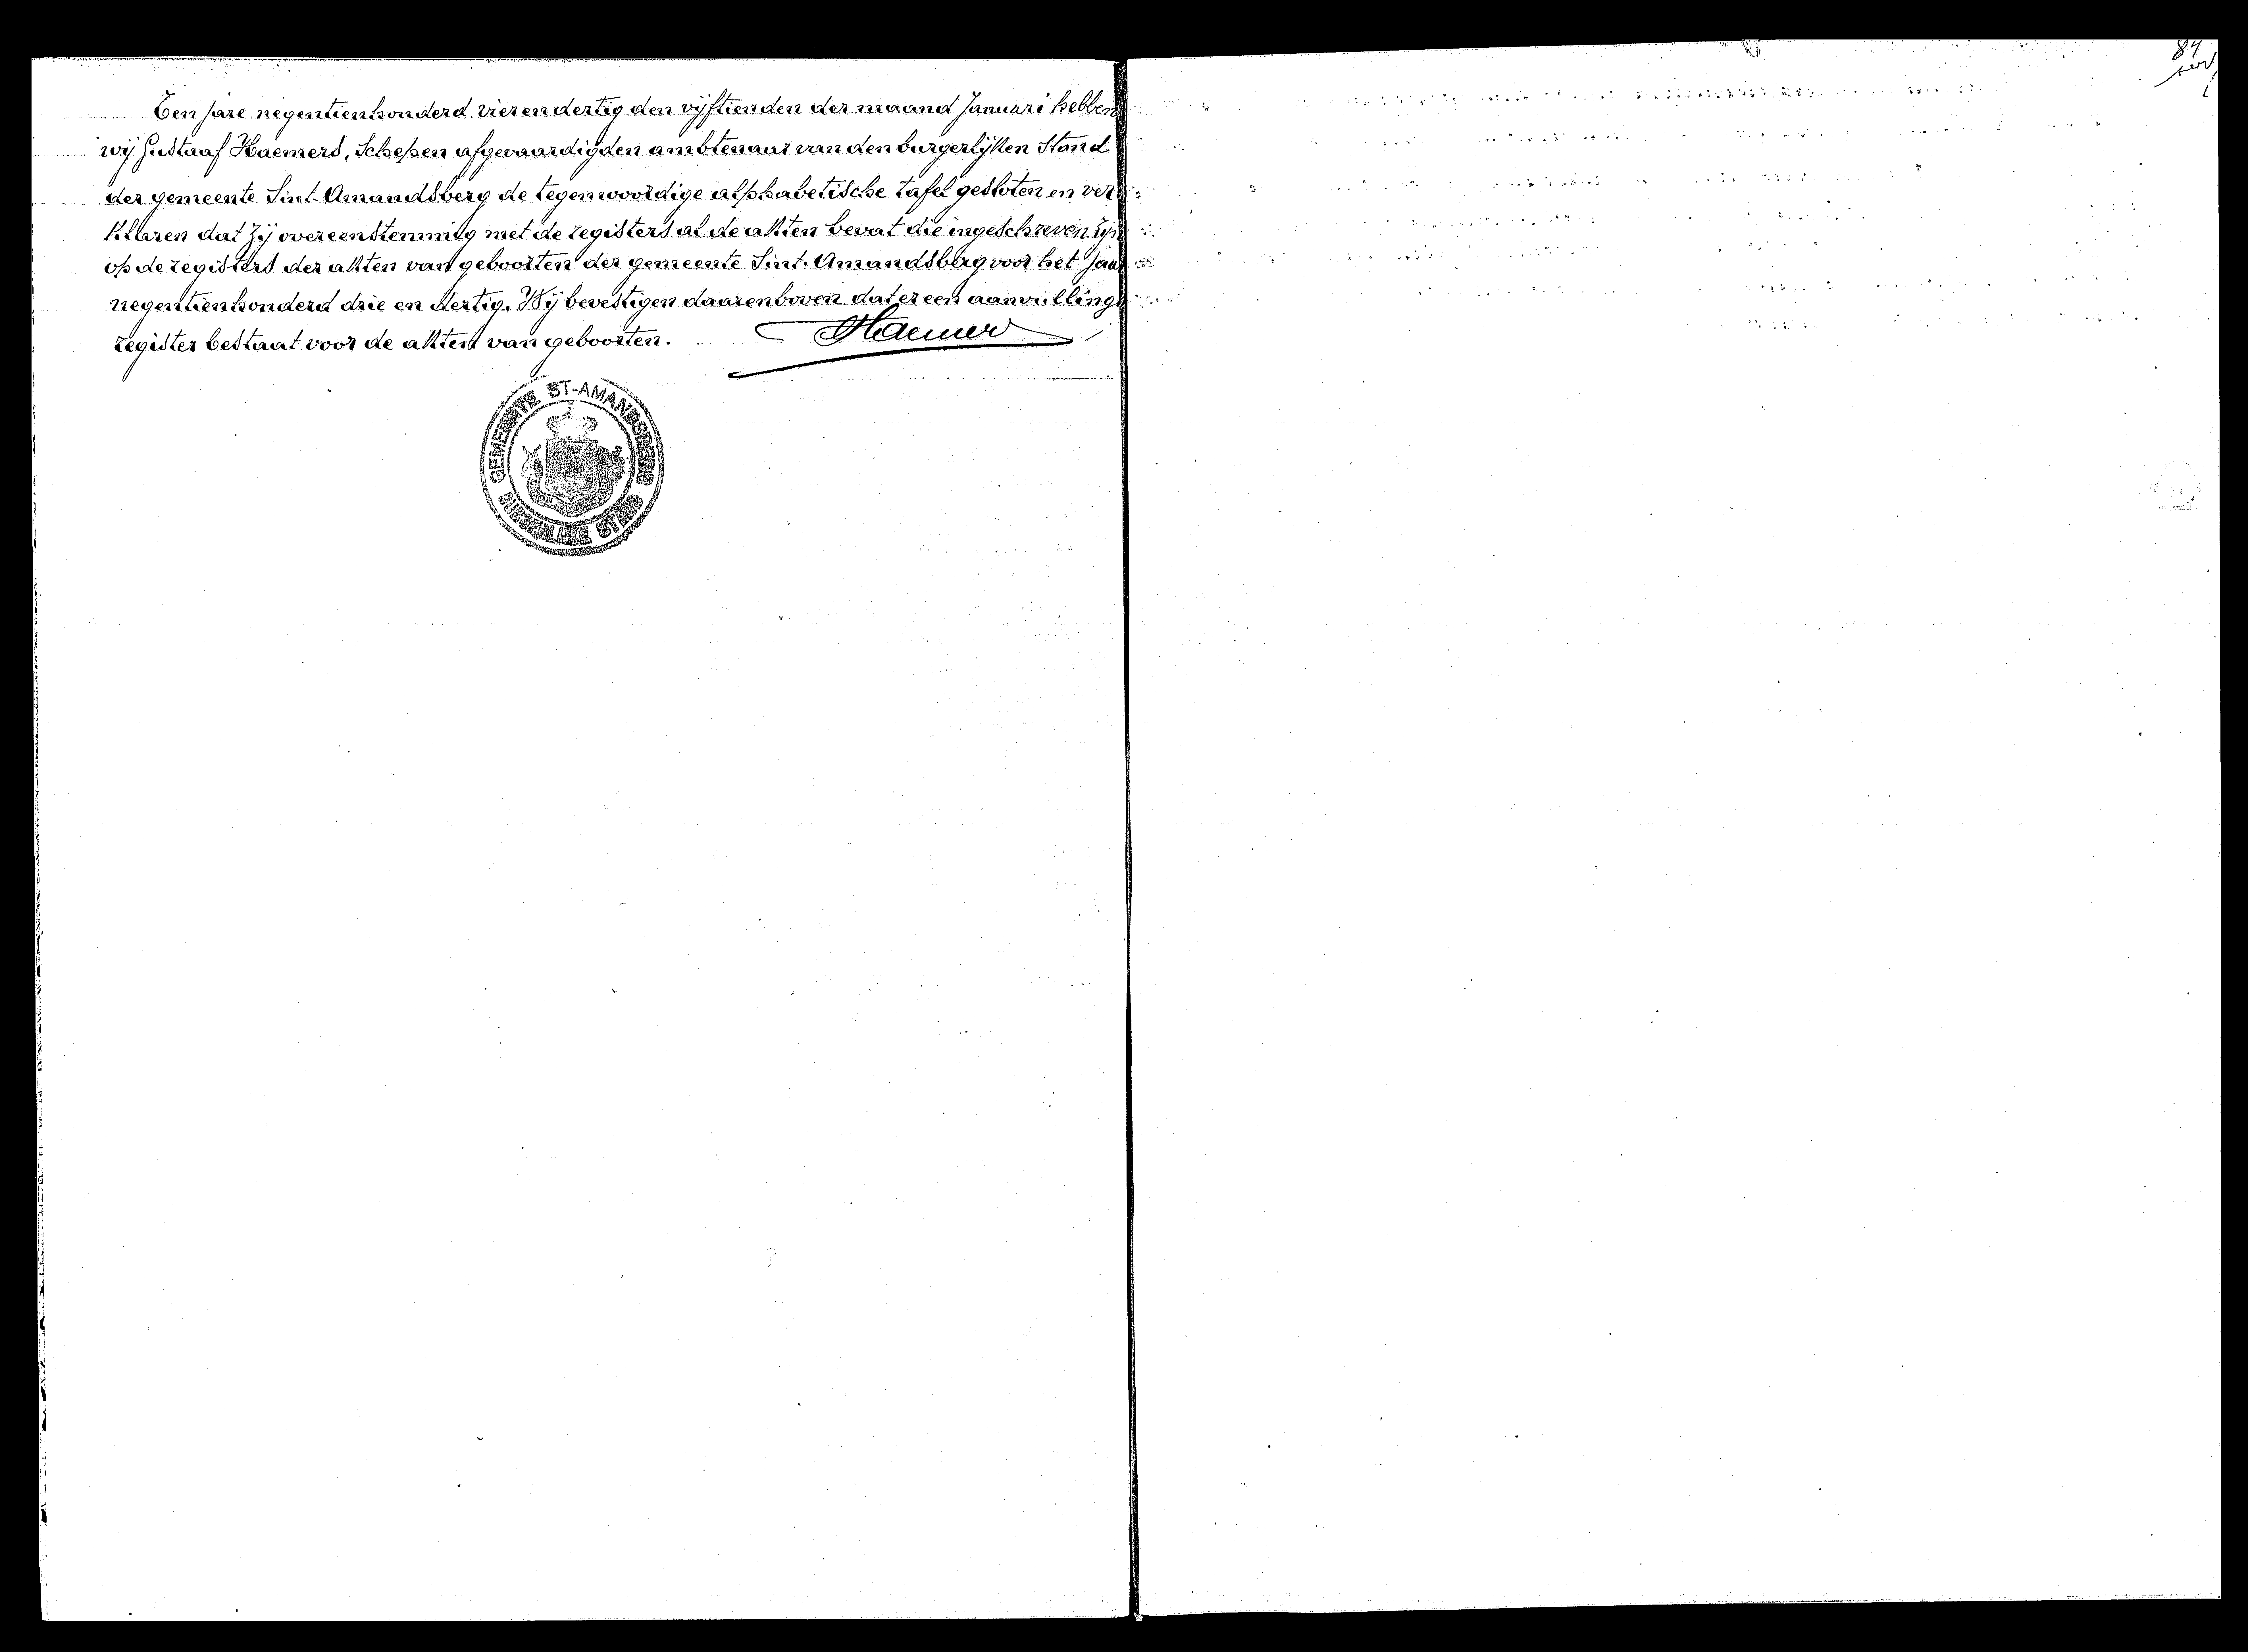 Ten jare negentienhonderd vier en dertig den vijftienden der maand Januari hebben
wij Gustaaf Haemers, Schepen afgevaardigden ambtenaar van den burgerlijken Stand
der gemeente Sint-Amandsberg de tegenwoordige alphabetische tafel gesloten en ver
klaren dat zij overeenstemmig met de registers al de akten bevat die ingeschreven zijn
op de registers der akten van geboorten der gemeente Sint-Amandsberg voor het jaar
negentienhonderd drie en dertig. Wij bevestigen daarenboven dat er een aanvullings
register bestaat voor de akten van geboorten.
Haemers
GEMEENTE ST-AMANDSBERG
BURGERLIJKE STAND
84